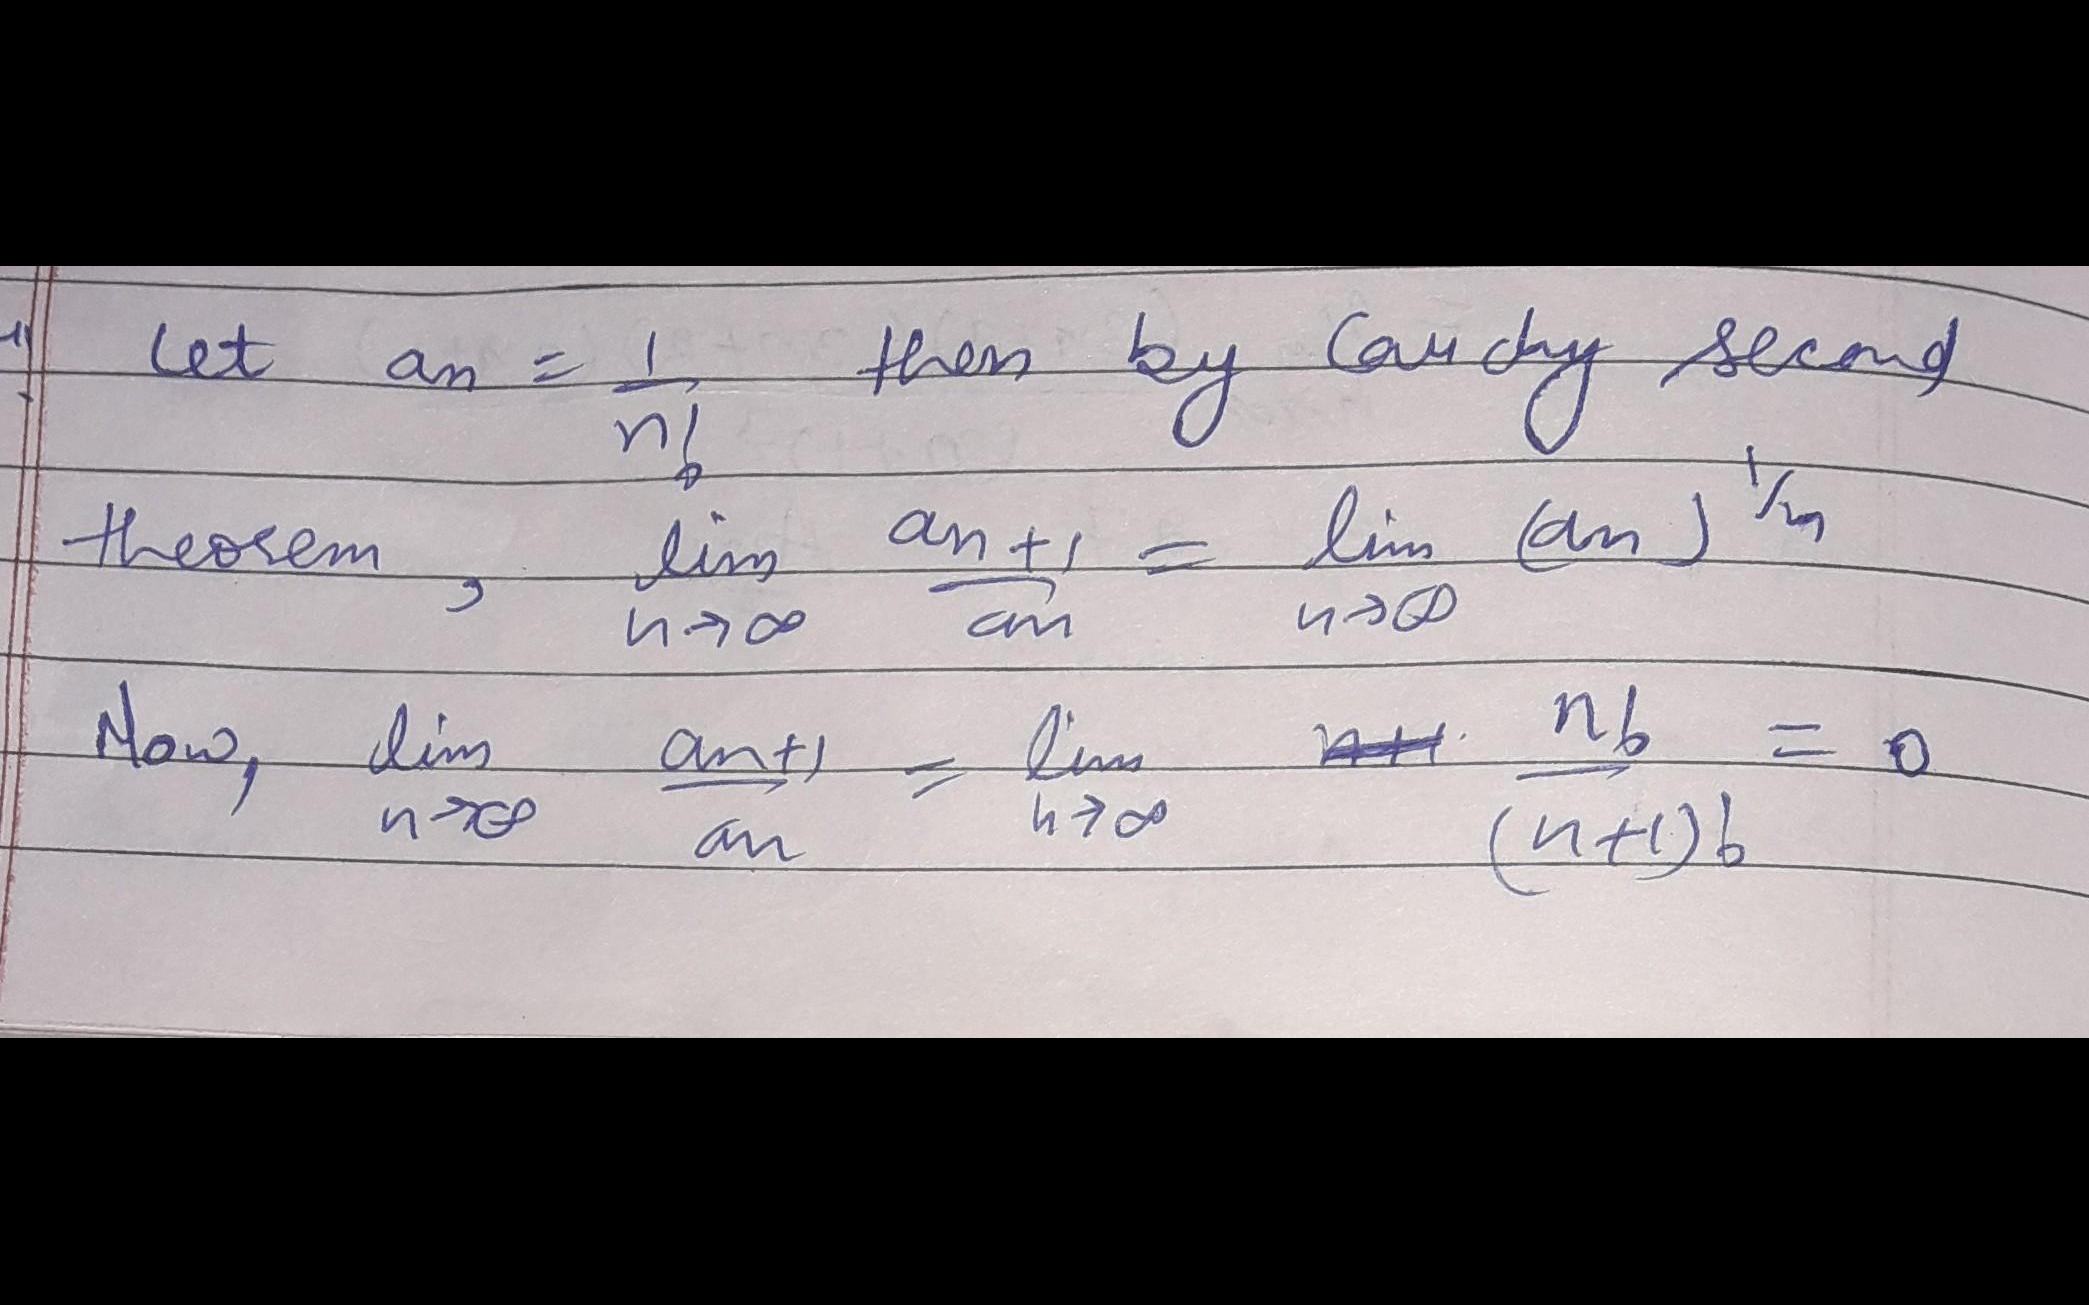 Let an = 1/n! then by Cauchy second
theorem, lim n→∞ an+1/an = lim n→∞ (an)^1/n
Now, lim n→∞ an+1/an = lim n→∞ n!/(n+1)! = 0